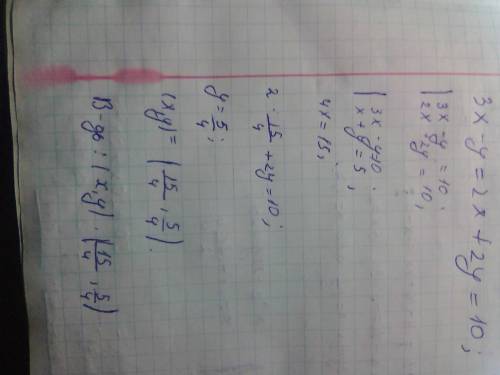 3x - y = 2x + 2y = 10;
{3x - y = 10;
2x + 2y = 10;
{3x - y = 10;
x + y = 5;
4x = 15;
2 · 15/4 + 2y = 10;
y = 5/4;
(x,y) = (15/4, 5/4).
В-дь: (x,y) · (15/4, 5/4)